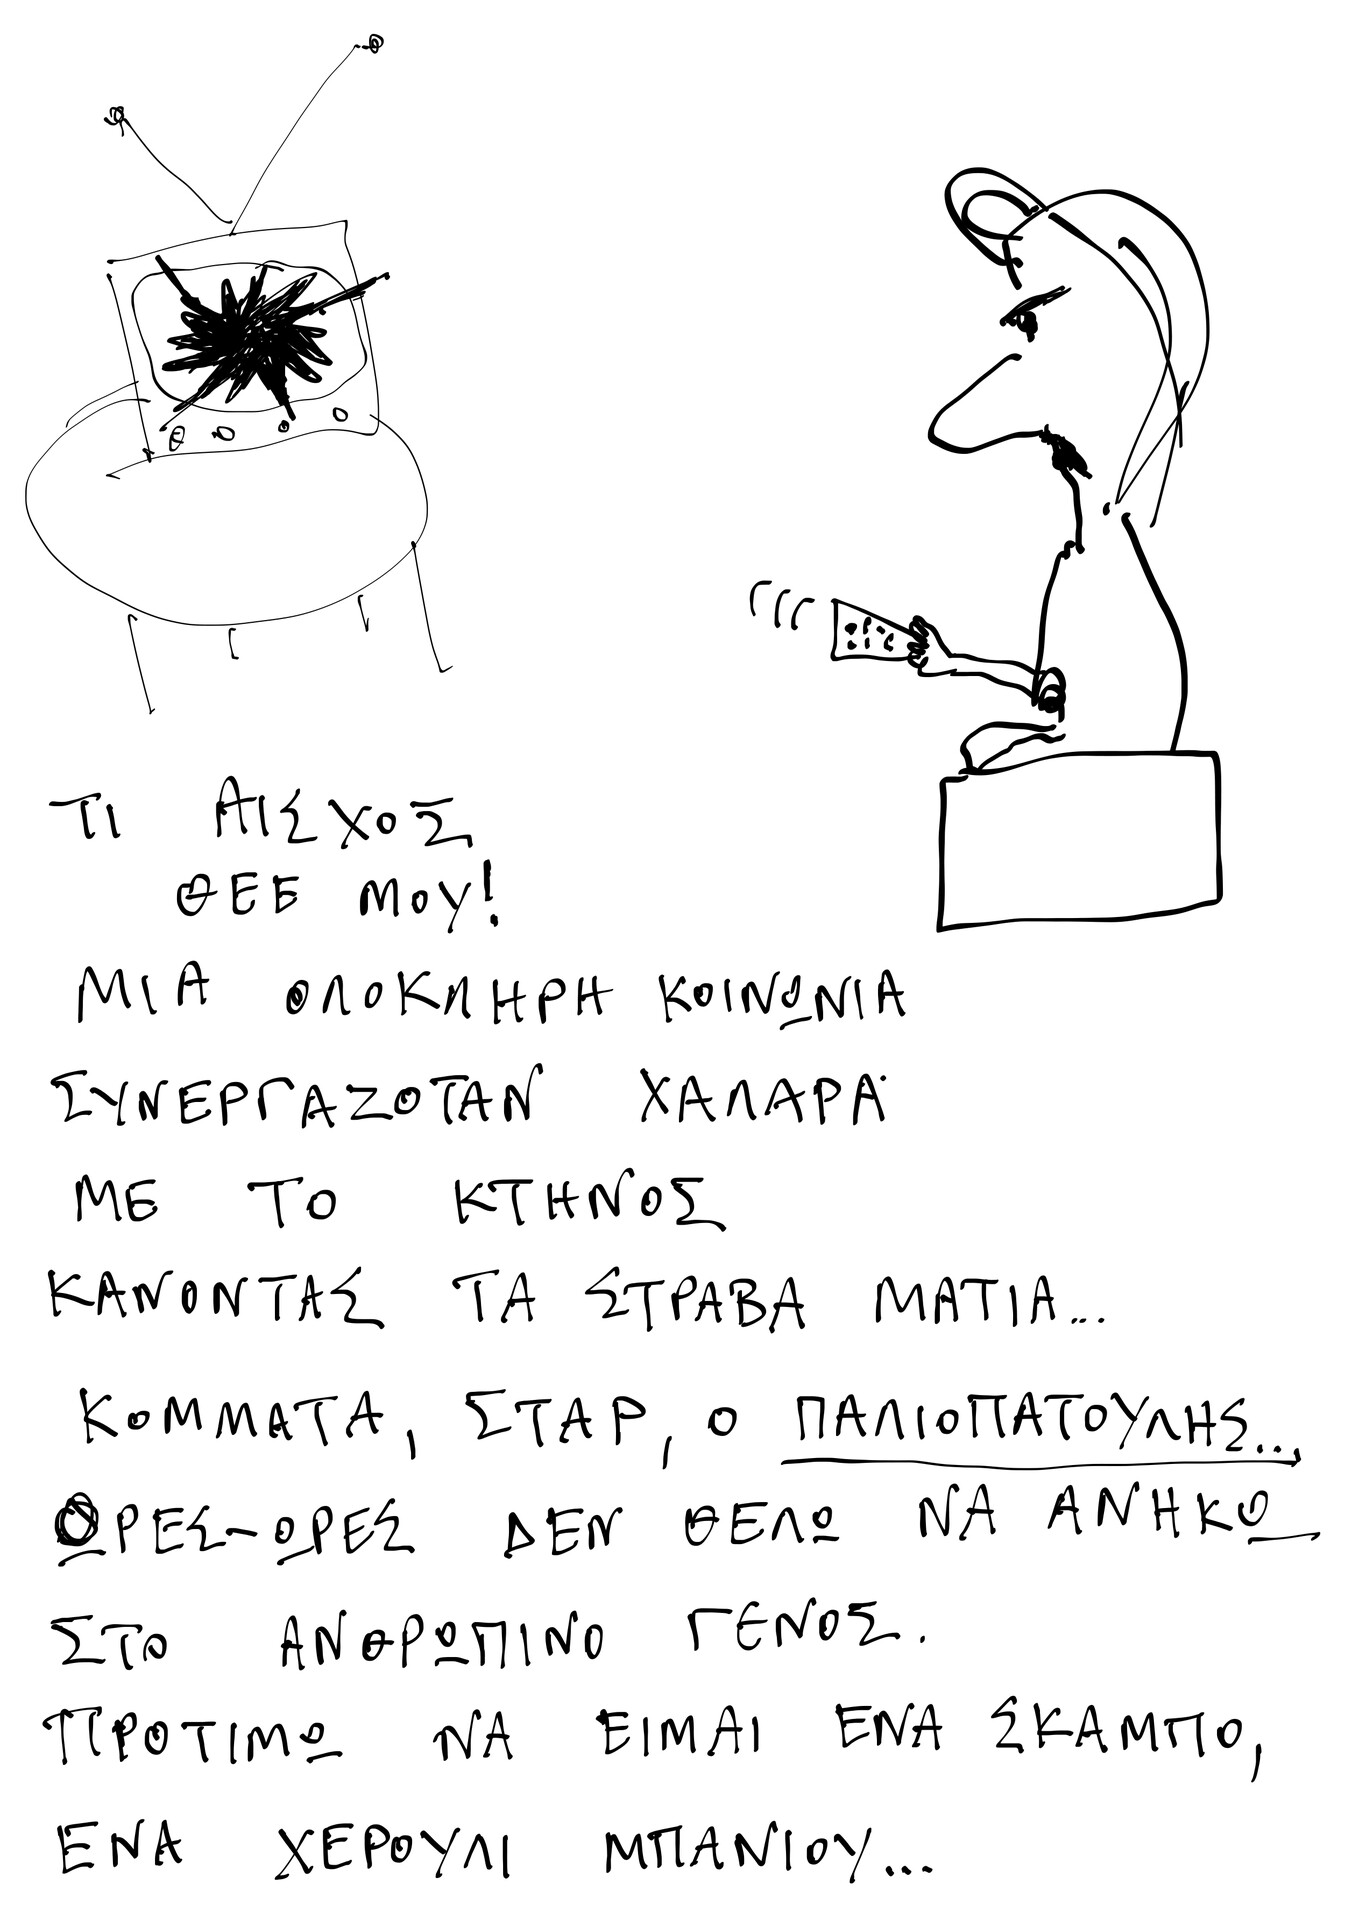 ΤΙ ΑΙΣΧΟΣ
ΘΕΕ ΜΟΥ!
ΜΙΑ ΟΛΟΚΛΗΡΗ ΚΟΙΝΩΝΙΑ
ΣΥΝΕΡΓΑΖΟΤΑΝ ΧΑΛΑΡΑ
ΜΕ ΤΟ ΚΤΗΝΟΣ
ΚΑΝΟΝΤΑΣ ΤΑ ΣΤΡΑΒΑ ΜΑΤΙΑ...
ΚΟΜΜΑΤΑ, ΣΤΑΡ, Ο ΠΑΛΙΟΠΑΤΟΥΛΗΣ...
ΩΡΕΣ-ΩΡΕΣ ΔΕΝ ΘΕΛΩ ΝΑ ΑΝΗΚΩ
ΣΤΟ ΑΝΘΡΩΠΙΝΟ ΓΕΝΟΣ.
ΠΡΟΤΙΜΩ ΝΑ ΕΙΜΑΙ ΕΝΑ ΣΚΑΜΠΟ,
ΕΝΑ ΧΕΡΟΥΛΙ ΜΠΑΝΙΟΥ...